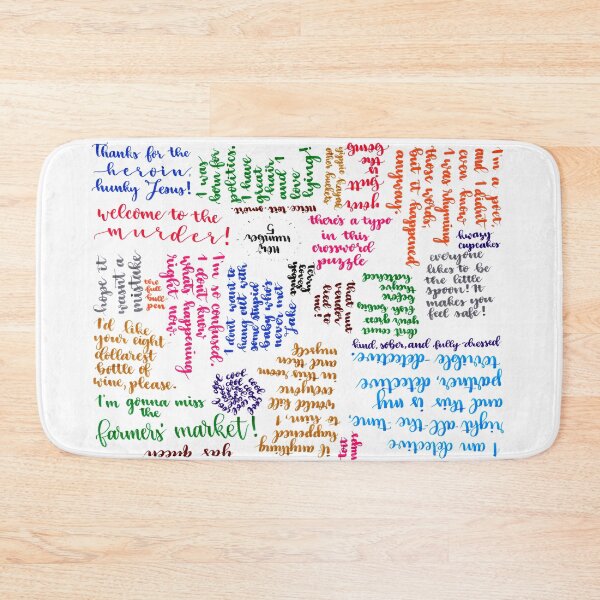 Thanks for the
heroin,
hunky Jesus!
I was
born for
politics.
I have
great
hair
and I
love
lying!
yippie kayak
other buckets
I'm a poet,
and I didn't
even know
I was rhyming
those words,
but it happened
anyway.
welcome to the
murder!
number
5
there's a typo
in this
crossword
puzzle
kwazy
cupcakes
everyone
likes to be
the little
spoon! It
makes you
feel safe!
hope it
wasnt a
mistake
the full
bull
pen
I'm so confused.
I dont know
whats happening
right now.
I dont want to
hang out with
some stupid
baby who's
never met
Jake
terry
loves
yogurt
dont count
kind, sober, and fully dressed
I'd like
your eight
dollarest
bottle of
wine, please.
cool cool cool
if anything
happened
to him, I
would kill
everyone
in this room
and then
myself
I am detective
right all the time,
and this is my
partner, detective
terrible detective.
I'm gonna miss
the
farmers' market!
yas queen
toit
nups